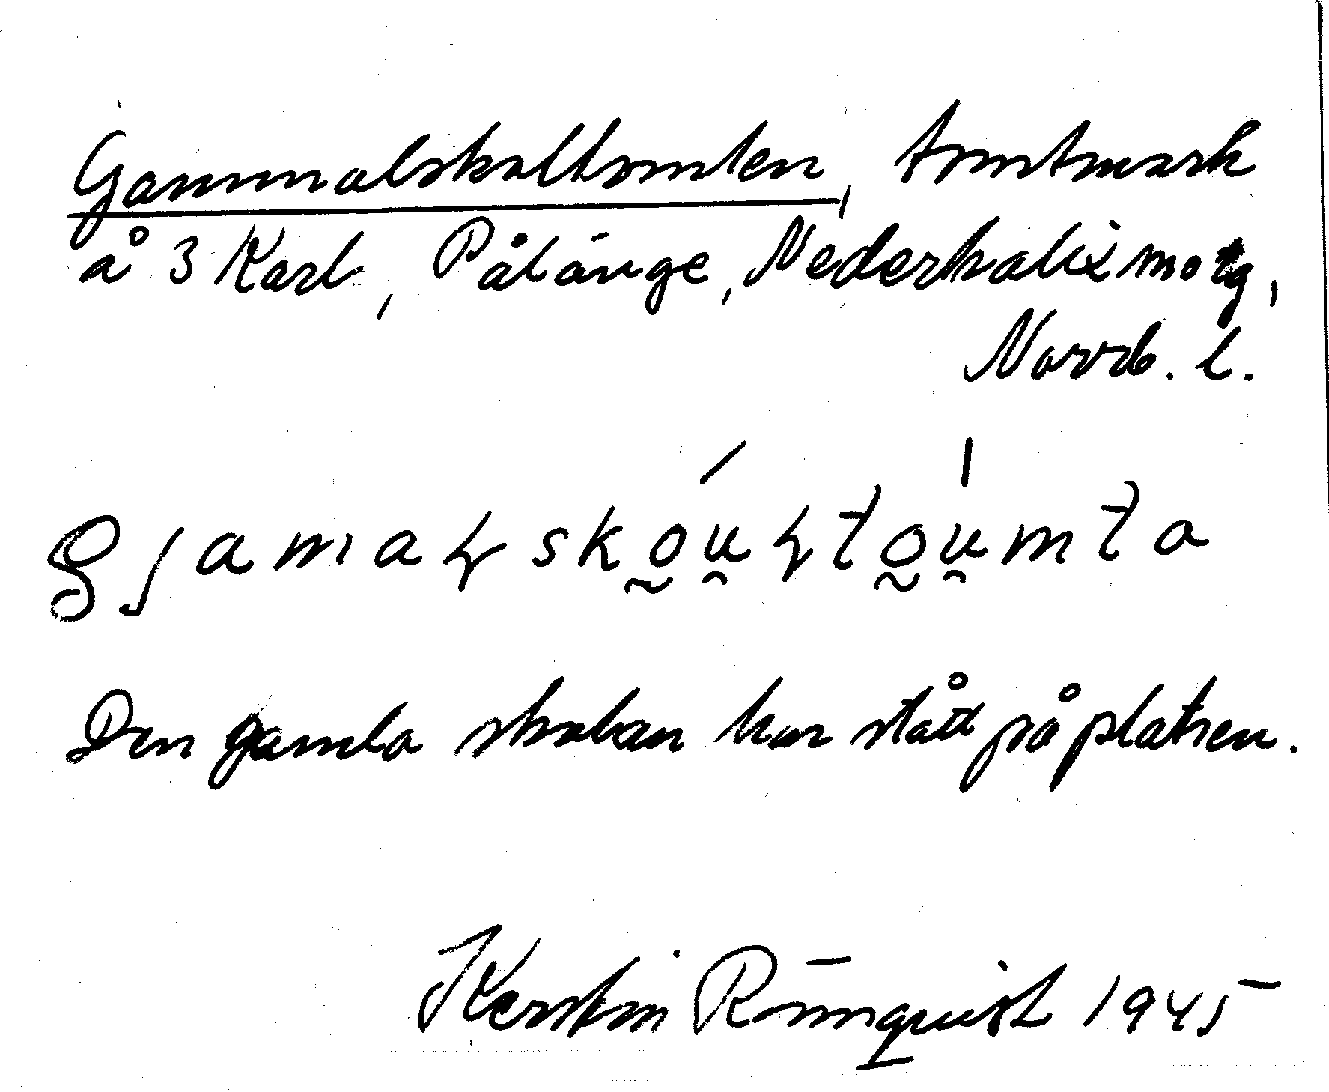 Gammalskoltomten, tomtmark
å 3 Karl, Pålänge, Nederkalix sn
Norrb. l.
Den gamla skolan har stått på platsen.
Kerstin Rönnquist 1945